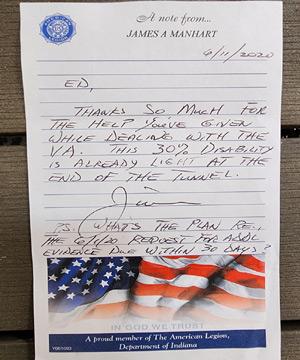 A note from...
JAMES A MANHART
6/11/2020
ED,
THANKS SO MUCH FOR
THE HELP YOU'VE GIVEN
WHILE DEALING WITH THE
VA. THIS 30% DISABILITY
IS ALREADY LIGHT AT THE
END OF THE TUNNEL.
Jim
P.S. WHAT'S THE PLAN RE.,
THE 6/1/20 REQUEST FOR ADDL
EVIDENCE DUE WITHIN 30 DAYS?
IN GOD WE TRUST
A proud member of The American Legion,
Department of Indiana